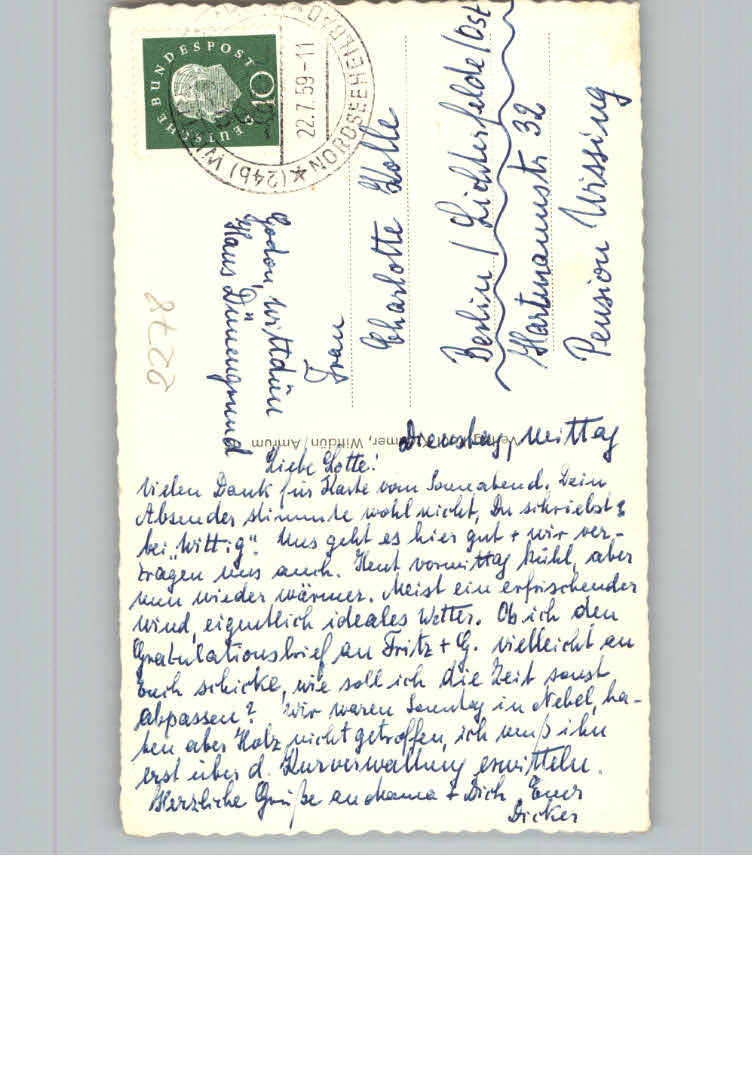 DEUTSCHE BUNDESPOST
10
(24b)
NORDSEEHEILBAD
22.7.59-11
Godon, Wittdün
Haus Dünengrund
Frau
Charlotte Kolle
Berlin / Lichterfelde/Ost
Hartmannstr 32
Pension Wissing
8228
Verlag Kramer, Wittdün/Amrum
Dienstag, Mittag
Liebe Lotte!
Vielen Dank für Karte vom Sonnabend. Dein
Absender stimmte wohl nicht, Du schriebst
bei „Wittig". Uns geht es hier gut + wir ver-
tragen uns auch. Heut vormittag kühl, aber
nun wieder wärmer. Meist ein erfrischender
Wind, eigentlich ideales Wetter. Ob ich den
Gratulationsbrief an Fritz + G. vielleicht an
Euch schicke, wie soll ich die Zeit sonst
abpassen? Wir waren Sonntag in Nebel, ha-
ben aber Holz nicht getroffen, ich muß ihn
erst über d. Kurverwaltung ermitteln.
Herzliche Grüße an Mama + Dich Euer
Dicker